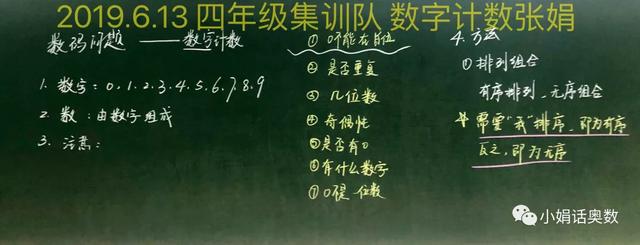 2019.6.13 四年级集训队 数字计数张娟
数码问题 —— 数字计数
1. 数字: 0.1.2.3.4.5.6.7.8.9
2. 数: 由数字组成
3. 注意:
① 0不能在首位
② 是否重复
③ 几位数
④ 奇偶性
⑤ 是否有0
⑥ 有什么数字
⑦ 0是一位数
4. 方法
① 排列组合
有序排列、无序组合
需要"我"排序, 即为有序
反之, 即为无序
小娟话奥数